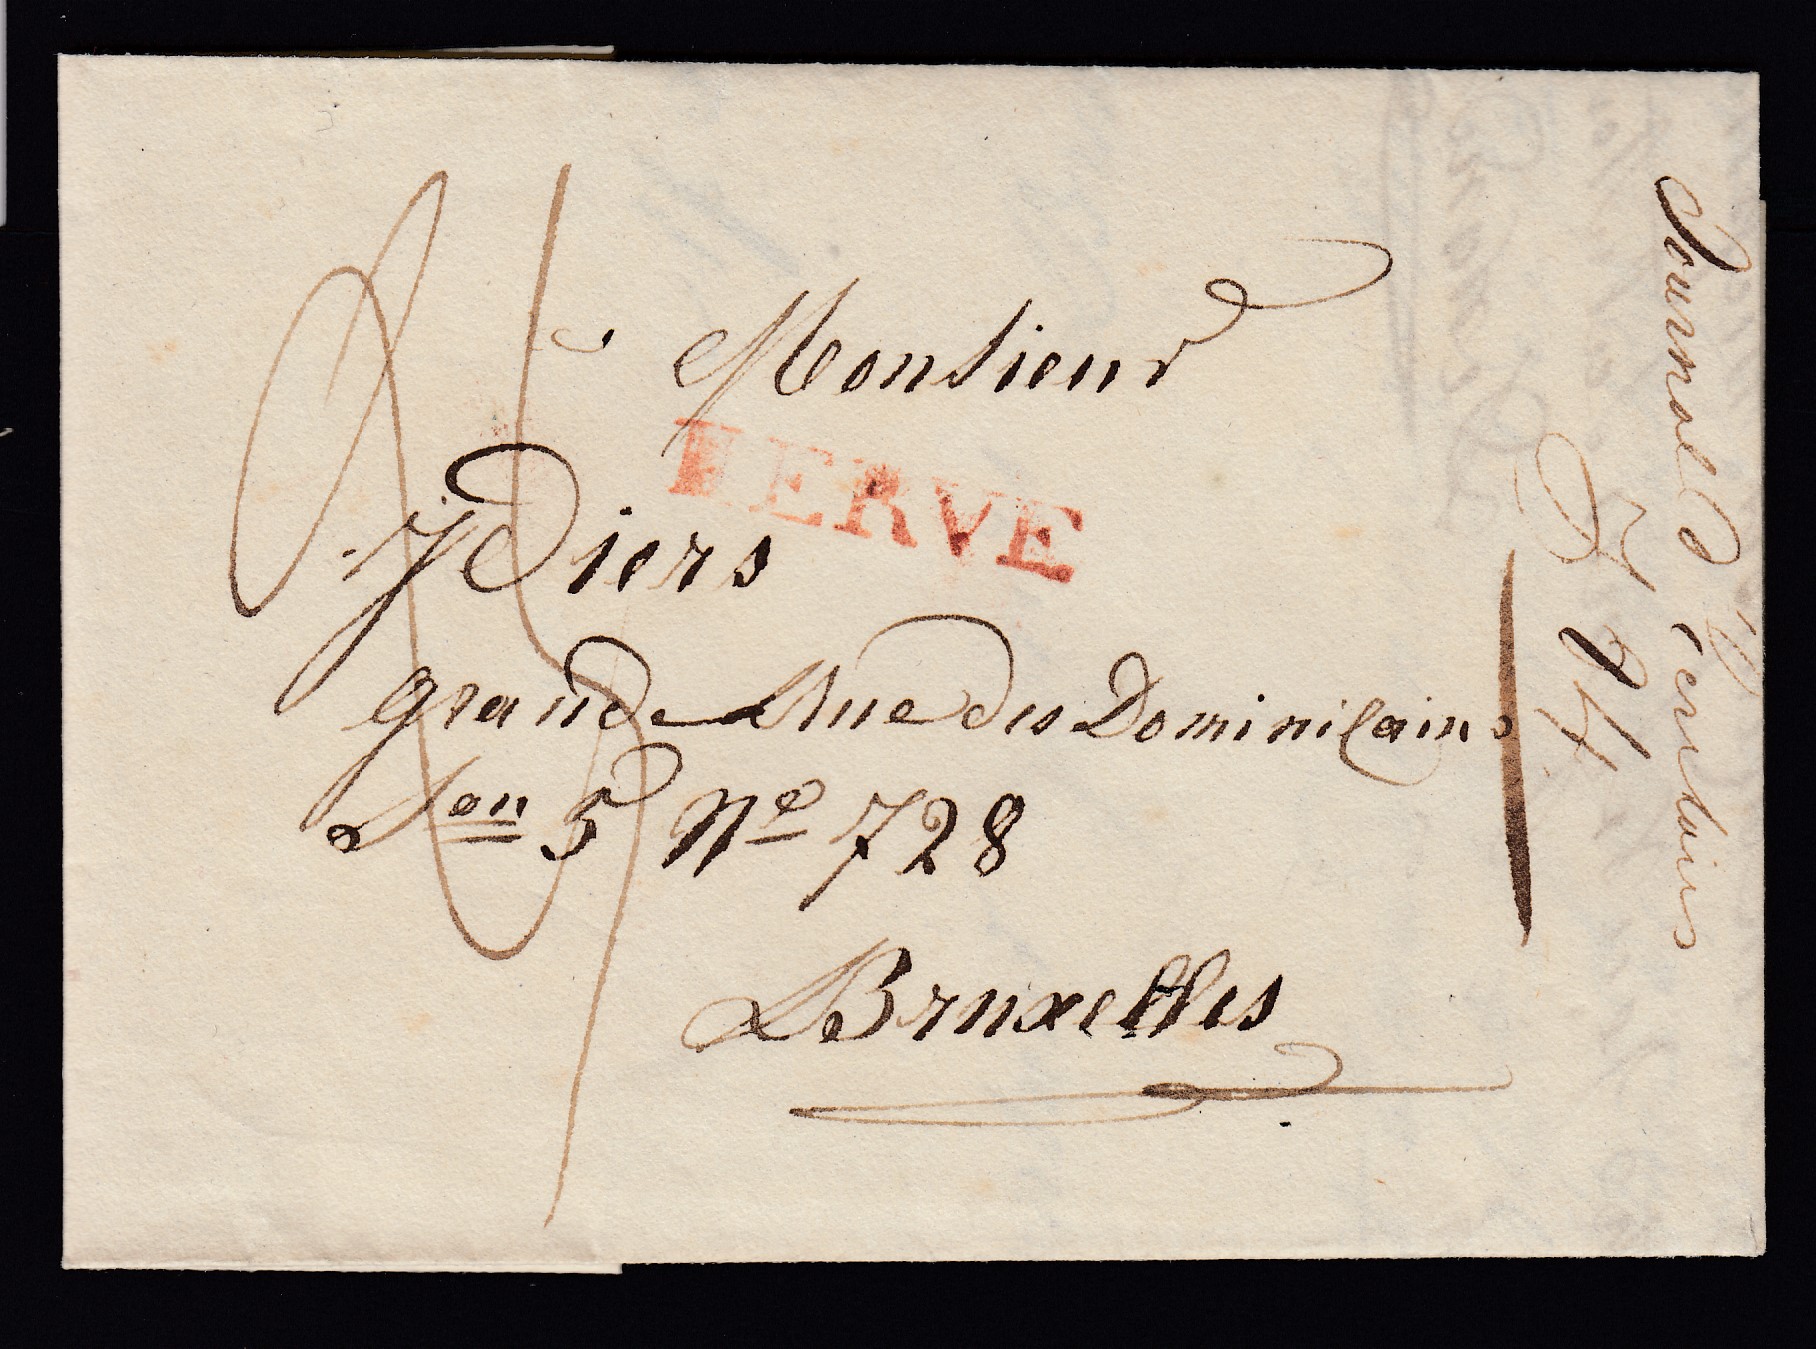 Monsieur
HERVE
J Diers
grande Rue des Dominicains
Son 5 No 728
Bruxelles